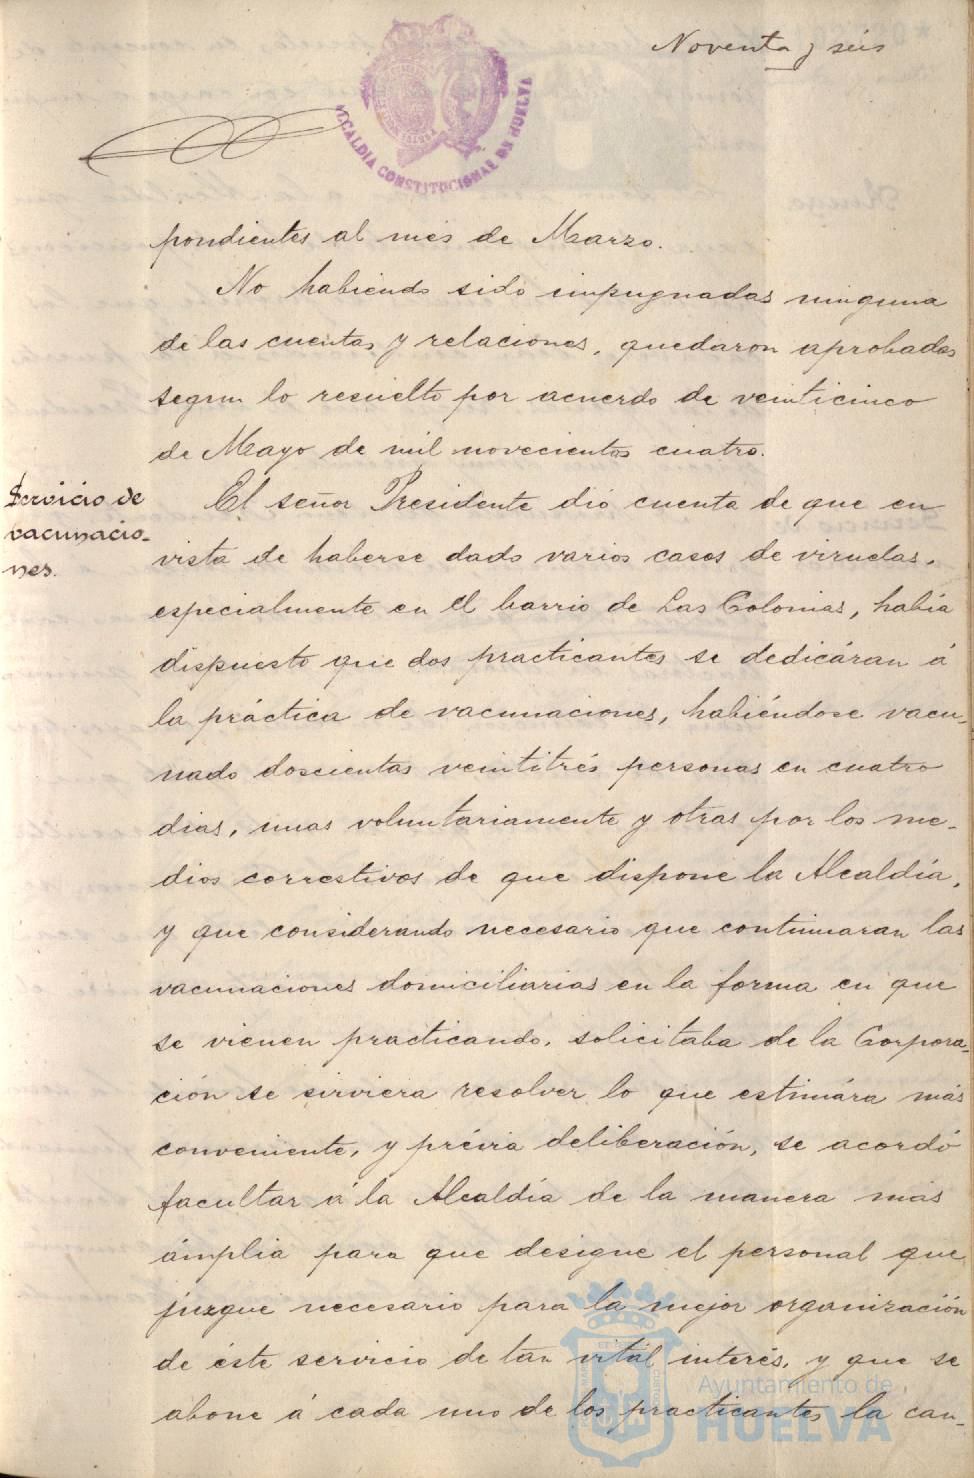 Noventa y séis
ALCALDIA CONSTITUCIONAL DE HUELVA
pondientes al mes de Marzo.
No habiendo sido impugnadas ninguna
de las cuentas y relaciones, quedaron aprobadas
segun lo resuelto por acuerdo de veinticinco
de Mayo de mil novecientos cuatro.
Servicio de
vacunacio-
nes.
El señor Presidente dió cuenta de que en
vista de haberse dado varios casos de viruelas,
especialmente en el barrio de Las Colonias, había
dispuesto que dos practicantes se dedicáran á
la práctica de vacunaciones, habiéndose vacu-
nado doscientas veintitrés personas en cuatro
dias, unas voluntariamente y otras por los me-
dios correctivos de que dispone la Alcaldía,
y que considerando necesario que continuaran las
vacunaciones domiciliarias en la forma en que
se vienen practicando, solicitaba de la Corpora-
ción se sirviera resolver lo que estimára más
conveniente, y prévia deliberación, se acordó
facultar á la Alcaldía de la manera mas
ámplia para que designe el personal que
juzgue necesario para la mejor organización
de éste servicio de tan vital interés, y que se
abone á cada uno de los practicantes la can-
Ayuntamiento de
HUELVA